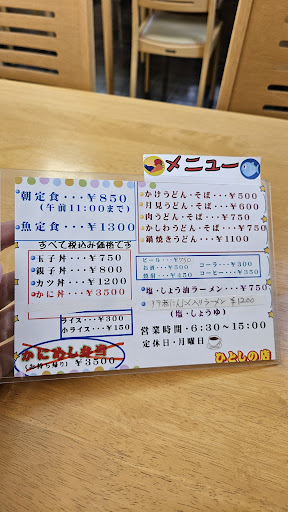 メニュー
朝定食・・・¥850
(午前11:00まで)
魚定食・・・¥1300
すべて税込み価格です
玉子丼・・・¥750
親子丼・・・¥800
カツ丼・・・¥1200
かに丼・・・¥3500
ライス・・・¥300
小ライス・・・¥150
かにめし弁当
(お持ち帰り) ¥3500
かけうどん・そば・・・¥500
月見うどん・そば・・・¥600
肉うどん・そば・・・¥750
かしわうどん・そば・・・¥750
鍋焼きうどん・・・¥1100
ビール・・¥750
お酒・・・¥500
焼酎・・・¥450
コーラ・・・¥300
コーヒー・・¥350
塩・しょう油ラーメン・・・¥750
入りラーメン ¥1200
(塩・しょうゆ)
営業時間・6:30~15:00
定休日・月曜日
ひとしの店